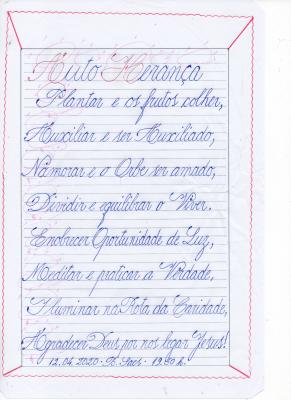 Auto Herança
Plantar e os frutos colher,
Auxiliar e ser Auxiliado,
Namorar e o Orbe ser amado,
Dividir e equilibrar o Viver.
Enobrecer Oportunidade de Luz,
Meditar e praticar a Verdade,
Iluminar na Rota da Caridade,
Agradecer Deus por nos legar Jesus!
12.04.2020 - 19:30 h.